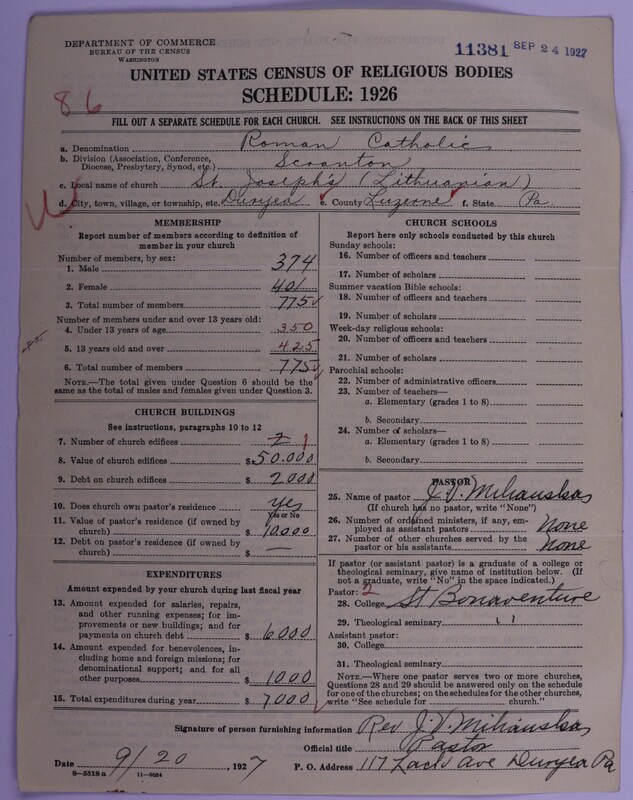 DEPARTMENT OF COMMERCE
BUREAU OF THE CENSUS
WASHINGTON
11381 SEP 24 1927
UNITED STATES CENSUS OF RELIGIOUS BODIES
SCHEDULE: 1926
86
FILL OUT A SEPARATE SCHEDULE FOR EACH CHURCH. SEE INSTRUCTIONS ON THE BACK OF THIS SHEET
a. Denomination Roman Catholic
b. Division (Association, Conference, Diocese, Presbytery, Synod, etc.) Scranton
c. Local name of church St. Joseph's (Lithuanian)
d. City, town, village, or township, etc. Duryea e. County Luzerne f. State Pa.
MEMBERSHIP
Report number of members according to definition of
member in your church
Number of members, by sex:
1. Male 374
2. Female 401
3. Total number of members 775
Number of members under and over 13 years old:
4. Under 13 years of age 350
5. 13 years old and over 425
6. Total number of members 775
NOTE.—The total given under Question 6 should be
same as the total of males and females given under Question 3.
CHURCH BUILDINGS
See instructions, paragraphs 10 to 12
7. Number of church edifices 2 1
8. Value of church edifices $50.000
9. Debt on church edifices $2000
10. Does church own pastor's residence? yes
Yes or No
11. Value of pastor's residence (if owned by
church) $10.000
12. Debt on pastor's residence (if owned by
church) $ —
EXPENDITURES
Amount expended by your church during last fiscal year
13. Amount expended for salaries, repairs,
and other running expenses; for im-
provements or new buildings; and for
payments on church debt $6000
14. Amount expended for benevolences, in-
cluding home and foreign missions; for
denominational support; and for all
other purposes $1000
15. Total expenditures during year $7.000
CHURCH SCHOOLS
Report here only schools conducted by this church
Sunday schools:
16. Number of officers and teachers
17. Number of scholars
Summer vacation Bible schools:
18. Number of officers and teachers
19. Number of scholars
Week-day religious schools:
20. Number of officers and teachers
21. Number of scholars
Parochial schools:
22. Number of administrative officers
23. Number of teachers—
a. Elementary (grades 1 to 8)
b. Secondary
24. Number of scholars—
a. Elementary (grades 1 to 8)
b. Secondary
PASTOR
25. Name of pastor J. V. Miliauskas
(If church has no pastor, write "None")
26. Number of ordained ministers, if any, em-
ployed as assistant pastors None
27. Number of other churches served by the
pastor or his assistants None
If pastor (or assistant pastor) is a graduate of a college or
theological seminary, give name of institution below. (If
not a graduate, write "No" in the space indicated.)
Pastor: 2
28. College St Bonaventure
29. Theological seminary " "
Assistant pastor:
30. College
31. Theological seminary
NOTE.—Where one pastor serves two or more churches,
Questions 28 and 29 should be answered only on the schedule
for one of the churches; on the schedules for the other churches,
write "See schedule for church."
Signature of person furnishing information Rev J. V. Miliauskas
Official title Pastor
Date 9/20, 1927 P. O. Address 117 Lack Ave Duryea Pa
8—5518 a 11—9034